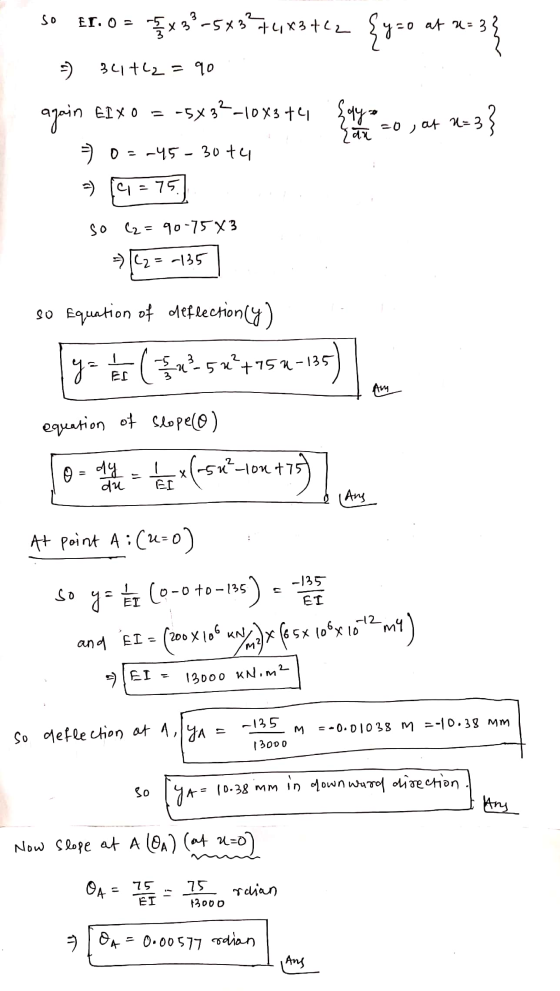 so EI.0 = -5/3 × 3³ - 5 × 3² + c₁ × 3 + c₂ {y=0 at x=3}
⇒ 3c₁ + c₂ = 90
again EI × 0 = -5 × 3² - 10 × 3 + c₁ {dy/dx = 0, at x=3}
⇒ 0 = -45 - 30 + c₁
⇒ c₁ = 75
so c₂ = 90 - 75 × 3
⇒ c₂ = -135
so Equation of deflection (y)
y = 1/EI (-5/3 x³ - 5x² + 75x - 135) Ans
equation of slope (θ)
θ = dy/dx = 1/EI × (-5x² - 10x + 75) Ans
At point A : (x=0)
so y = 1/EI (0 - 0 + 0 - 135) = -135/EI
and EI = (200 × 10⁶ KN/m²) × (65 × 10⁶ × 10⁻¹² m⁴)
⇒ EI = 13000 KN.m²
so deflection at A, yA = -135/13000 M = -0.01038 M = -10.38 mm
so yA = 10.38 mm in downward direction. Ans
Now slope at A (θA) (at x=0)
θA = 75/EI = 75/13000 rdian
⇒ θA = 0.00577 rdian Ans